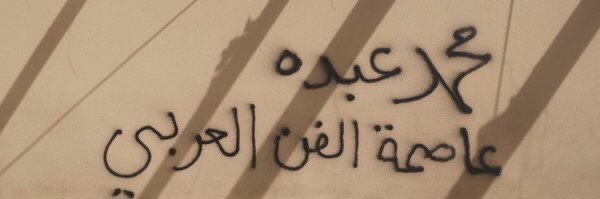 محمد عبده
عاصمة الفن العربي